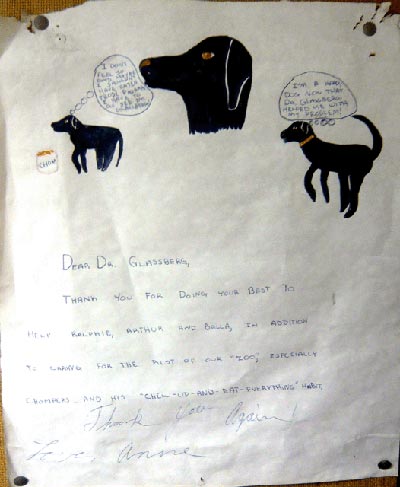 I DON'T
FEEL SO
CHOW
I'M A HAPPY
DOG NOW THAT
DR. GLASSBERG
HELPED ME WITH
MY PROBLEM!
DEAR DR. GLASSBERG,
THANK YOU FOR DOING YOUR BEST TO
HELP RALPHIE, ARTHUR AND BALLA, IN ADDITION
TO CARING FOR THE REST OF OUR "ZOO", ESPECIALLY
CHOMPERS AND HIS "CHEW-UP-AND-EAT-EVERYTHING" HABIT.
Thank you Again!
Love, Annie